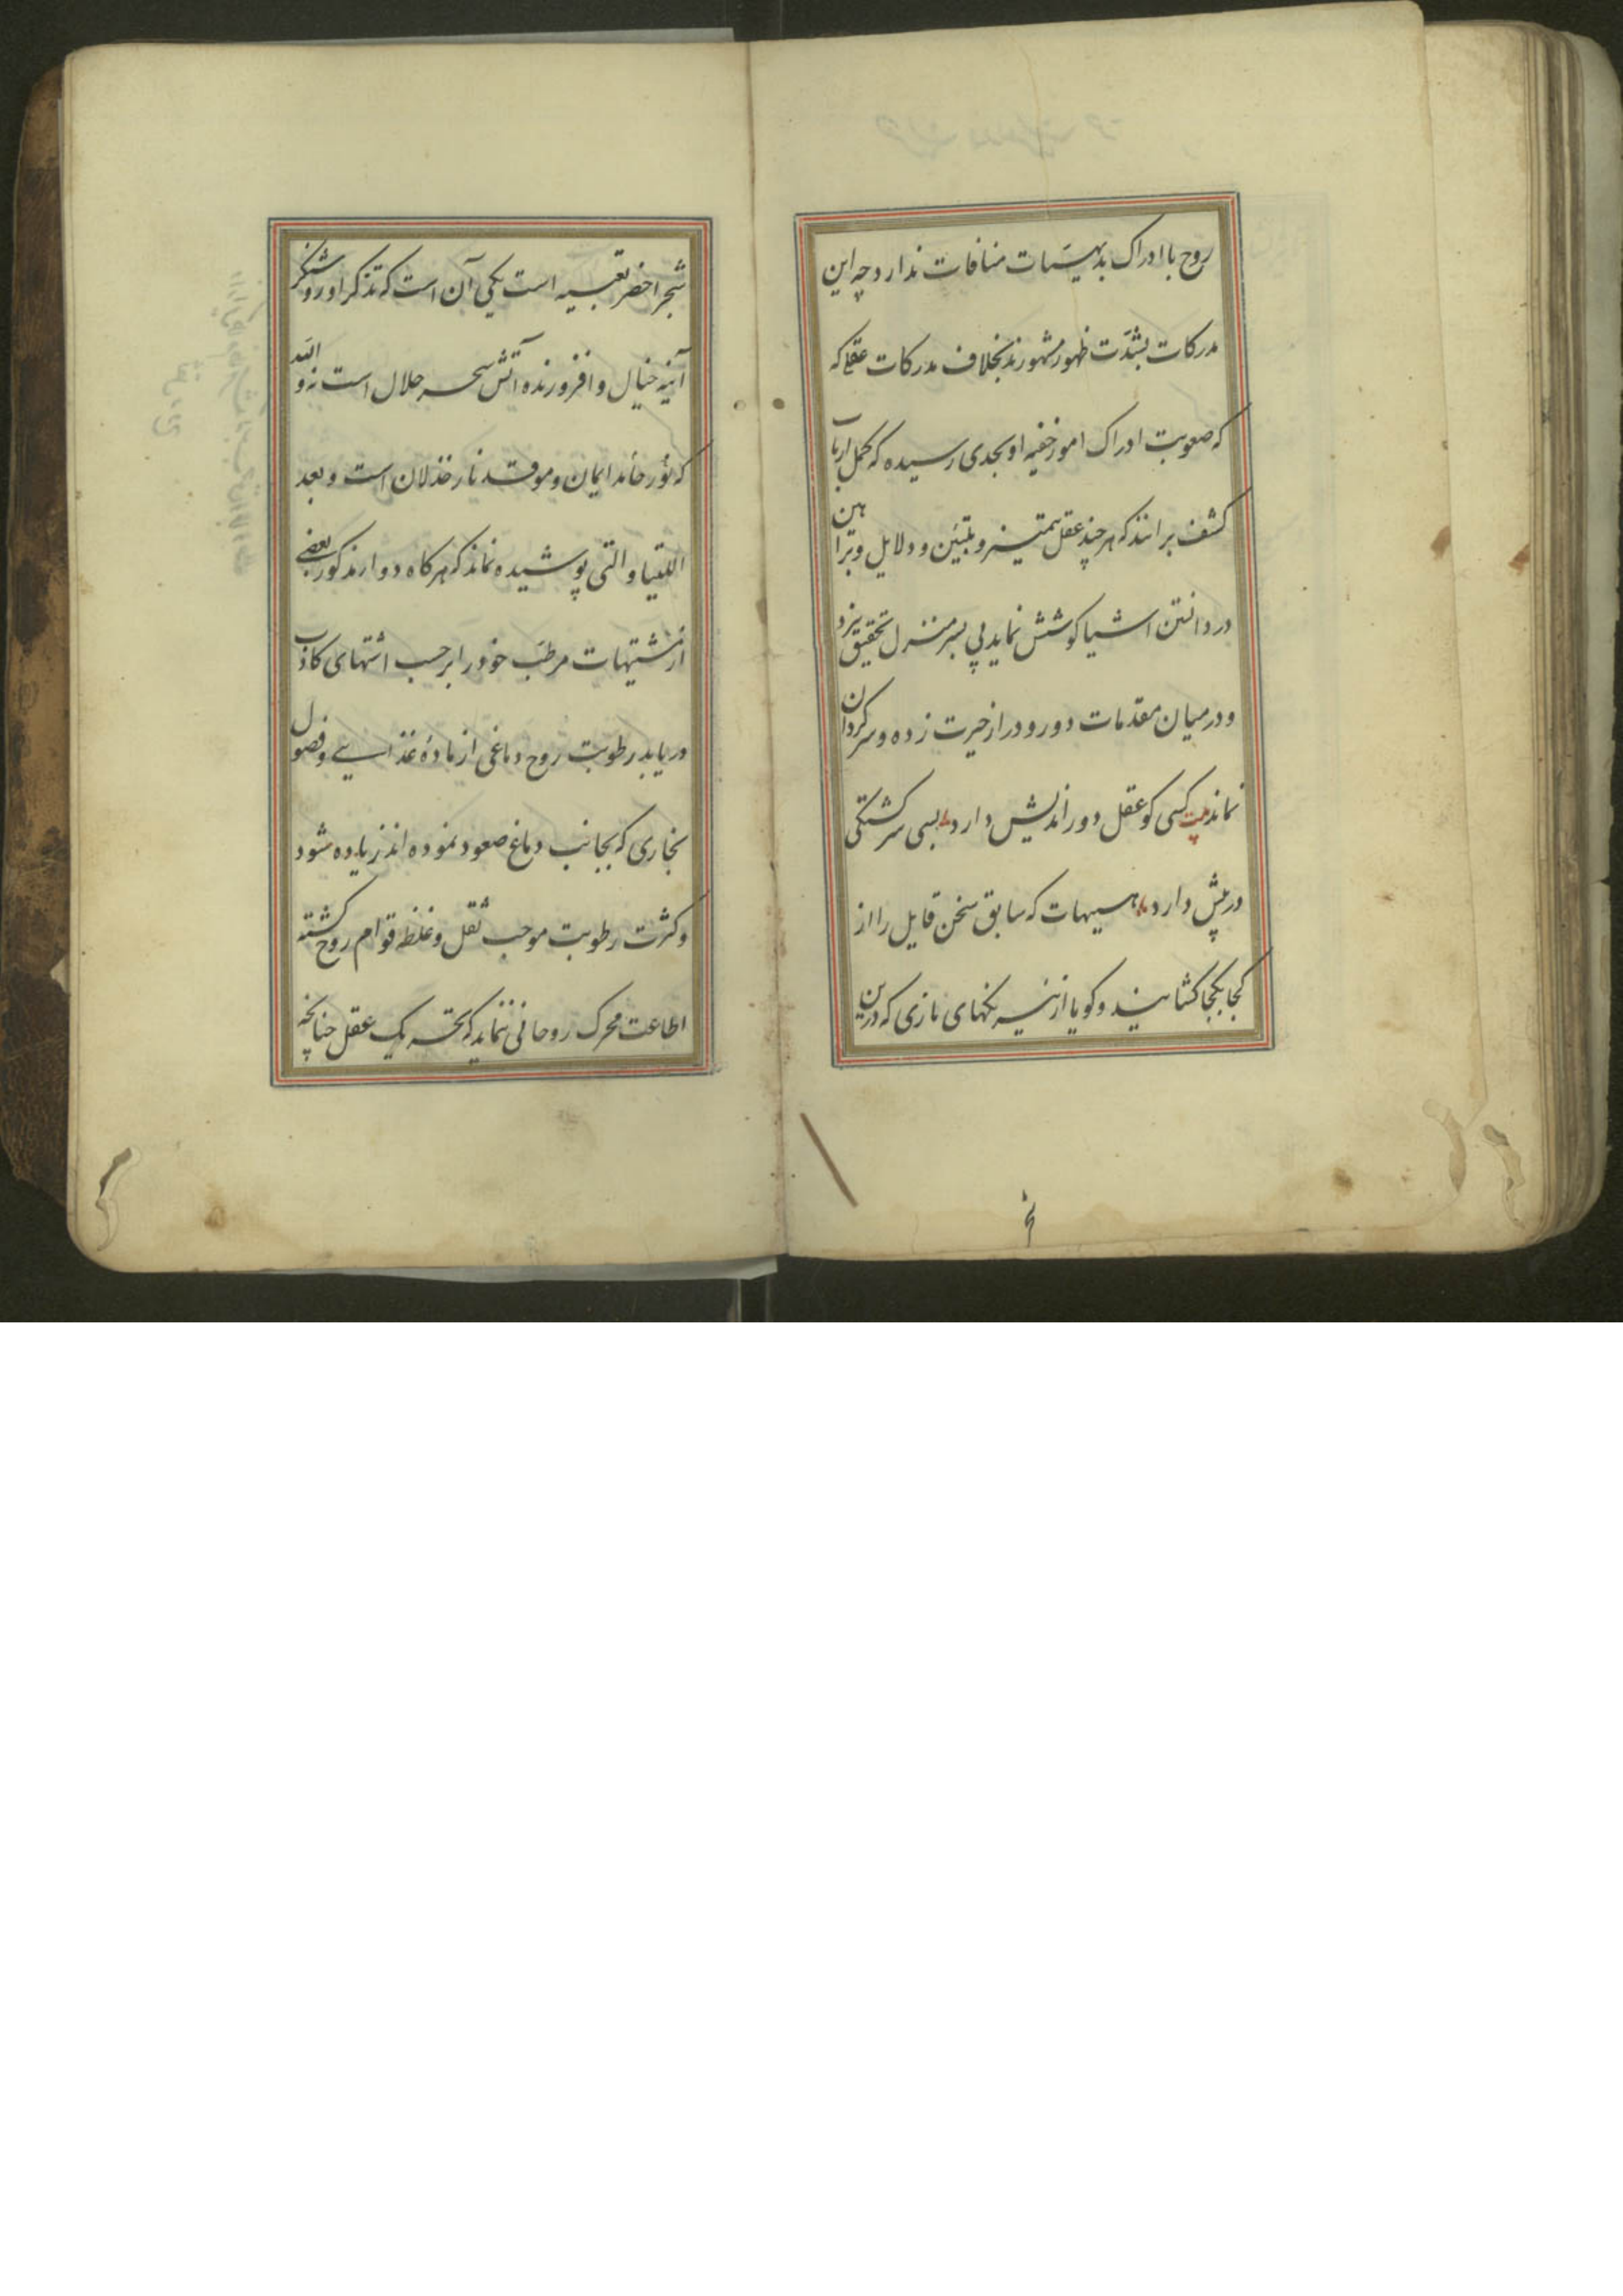 روح با ادراک بدیهیات منافات ندارد چه این
مدرکات بشدّت ظهور مشهورند بخلاف مدرکات عقلی که
که صعوبت ادراک امور خفیه او بحدی رسیده که کمل ارباب
کشف برانند که هر چند عقل بتمییز و تبیین و دلایل و براهین
در دانستن اشیا کوشش نماید پی بسر منزل تحقیق نبرد
و در میان مقدمات دور و دراز حیرت زده و سرگردان
نماند بیت کسی کو عقل دور اندیش دارد بسی سرگشتگی
در پیش دارد هیهات که سابق سخن قایل را از
کجا بکجا کشانید و کویا از نیرنگهای نازی که درین
شجر اخضر تعبیه است یکی آن است که تذکر او روشنگر
آینه خیال و افروزنده آتش سحر حلال است نه والله
که نور خامد ایمان و موقد نار خذلان است و بعد
اللتیا و التی پوشیده نماند که هرکاه دوار مذکور بعضی
از مشتهیات مرطب خود را بر حسب اشتهای کاذب
دریابد رطوبت روح دماغی از مادهٔ غذایی و فضول
بخاری که بجانب دماغ صعود نموده اند زیاده شود
و کثرت رطوبت موجب ثقل و غلظ قوام روح کشته
اطاعت محرک روحانی ننماید که بتحریک عقل چنانچه